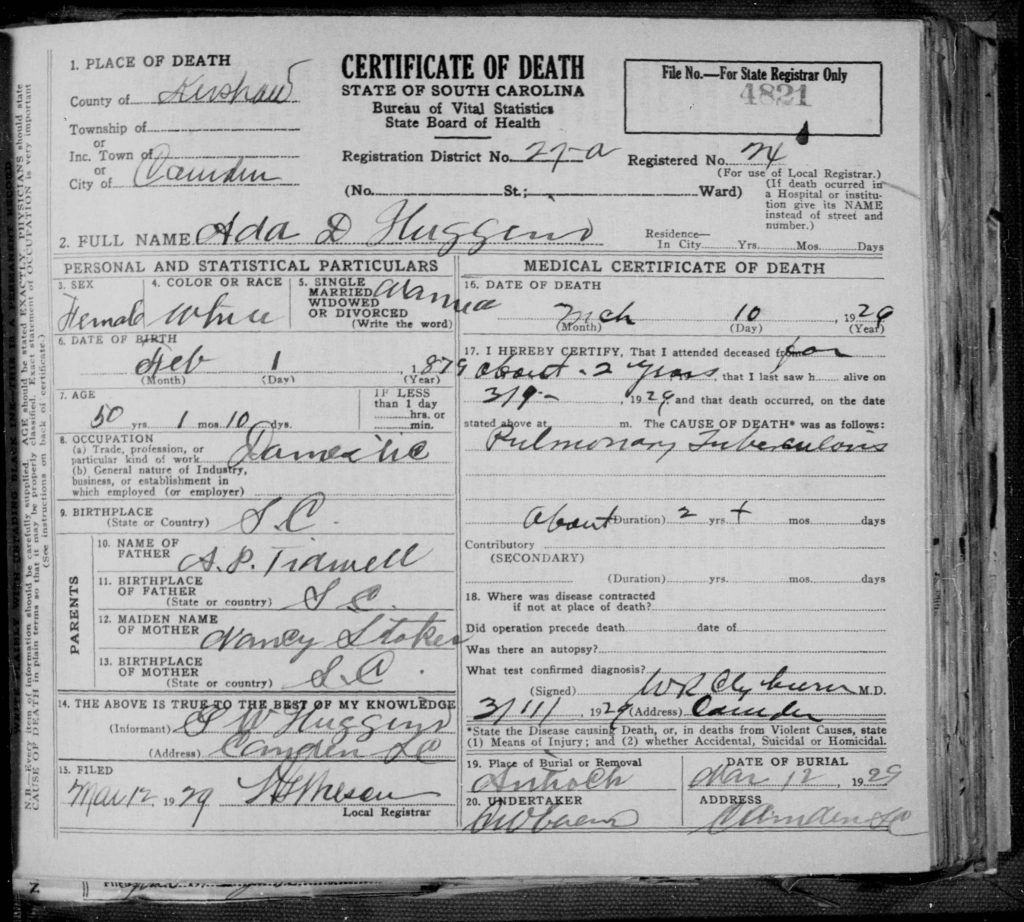 1. PLACE OF DEATH
County of Kershaw
Township of
or
Inc. Town of
or
City of Camden
CERTIFICATE OF DEATH
STATE OF SOUTH CAROLINA
Bureau of Vital Statistics
State Board of Health
Registration District No. 27-a
(No. St.; Ward)
File No.—For State Registrar Only
4821
Registered No. 24
(For use of Local Registrar.)
(If death ocurred in
a Hospital or institu-
tion give its NAME
instead of street and
number.)
Residence—
In City Yrs. Mos. Days
2. FULL NAME Ada D Huggins
PERSONAL AND STATISTICAL PARTICULARS
3. SEX
Female
4. COLOR OR RACE
White
5. SINGLE
MARRIED
WIDOWED
OR DIVORCED
(Write the word)
Married
6. DATE OF BIRTH
Feb 1, 1879
(Month) (Day) (Year)
7. AGE
50 yrs. 1 mos. 10 dys.
IF LESS
than 1 day
hrs. or
min.
8. OCCUPATION
(a) Trade, profession, or
particular kind of work Domestic
(b) General nature of Industry,
business, or establishment in
which employed (or employer)
9. BIRTHPLACE
(State or Country) S.C.
PARENTS
10. NAME OF
FATHER A. P. Tidwell
11. BIRTHPLACE
OF FATHER
(State or country) S C.
12. MAIDEN NAME
OF MOTHER Nancy Stokes
13. BIRTHPLACE
OF MOTHER
(State or country) S.C.
14. THE ABOVE IS TRUE TO THE BEST OF MY KNOWLEDGE
(Informant) W Huggins
(Address) Camden SC
15. FILED
Mar 12 1929
Local Registrar
MEDICAL CERTIFICATE OF DEATH
16. DATE OF DEATH
Mch 10, 1929
(Month) (Day) (Year)
17. I HEREBY CERTIFY, That I attended deceased from for
about - 2 years, that I last saw h alive on
3/9-, 1929 and that death occurred, on the date
stated above at m. The CAUSE OF DEATH* was as follows:
Pulmonary Tuberculosis
About (Duration) 2 yrs. + mos. days
Contributory
(SECONDARY)
(Duration) yrs. mos. days
18. Where was disease contracted
if not at place of death?
Did operation precede death date of
Was there an autopsy?
What test confirmed diagnosis?
(Signed) WR Clyburn M.D.
3/11/, 1929 (Address) Camden
*State the Disease causing Death, or, in deaths from Violent Causes, state
(1) Means of Injury; and (2) whether Accidental, Suicidal or Homicidal.
19. Place of Burial or Removal
Antioch
DATE OF BURIAL
Mar 12, 1929
20. UNDERTAKER
ADDRESS
Camden SC
N.B.—Every item of information should be carefully supplied. AGE should be stated EXACTLY. PHYSICIANS should state
CAUSE OF DEATH in plain terms so that it may be properly classified. Exact statement of OCCUPATION is very important
(See instructions on back of certificate.)